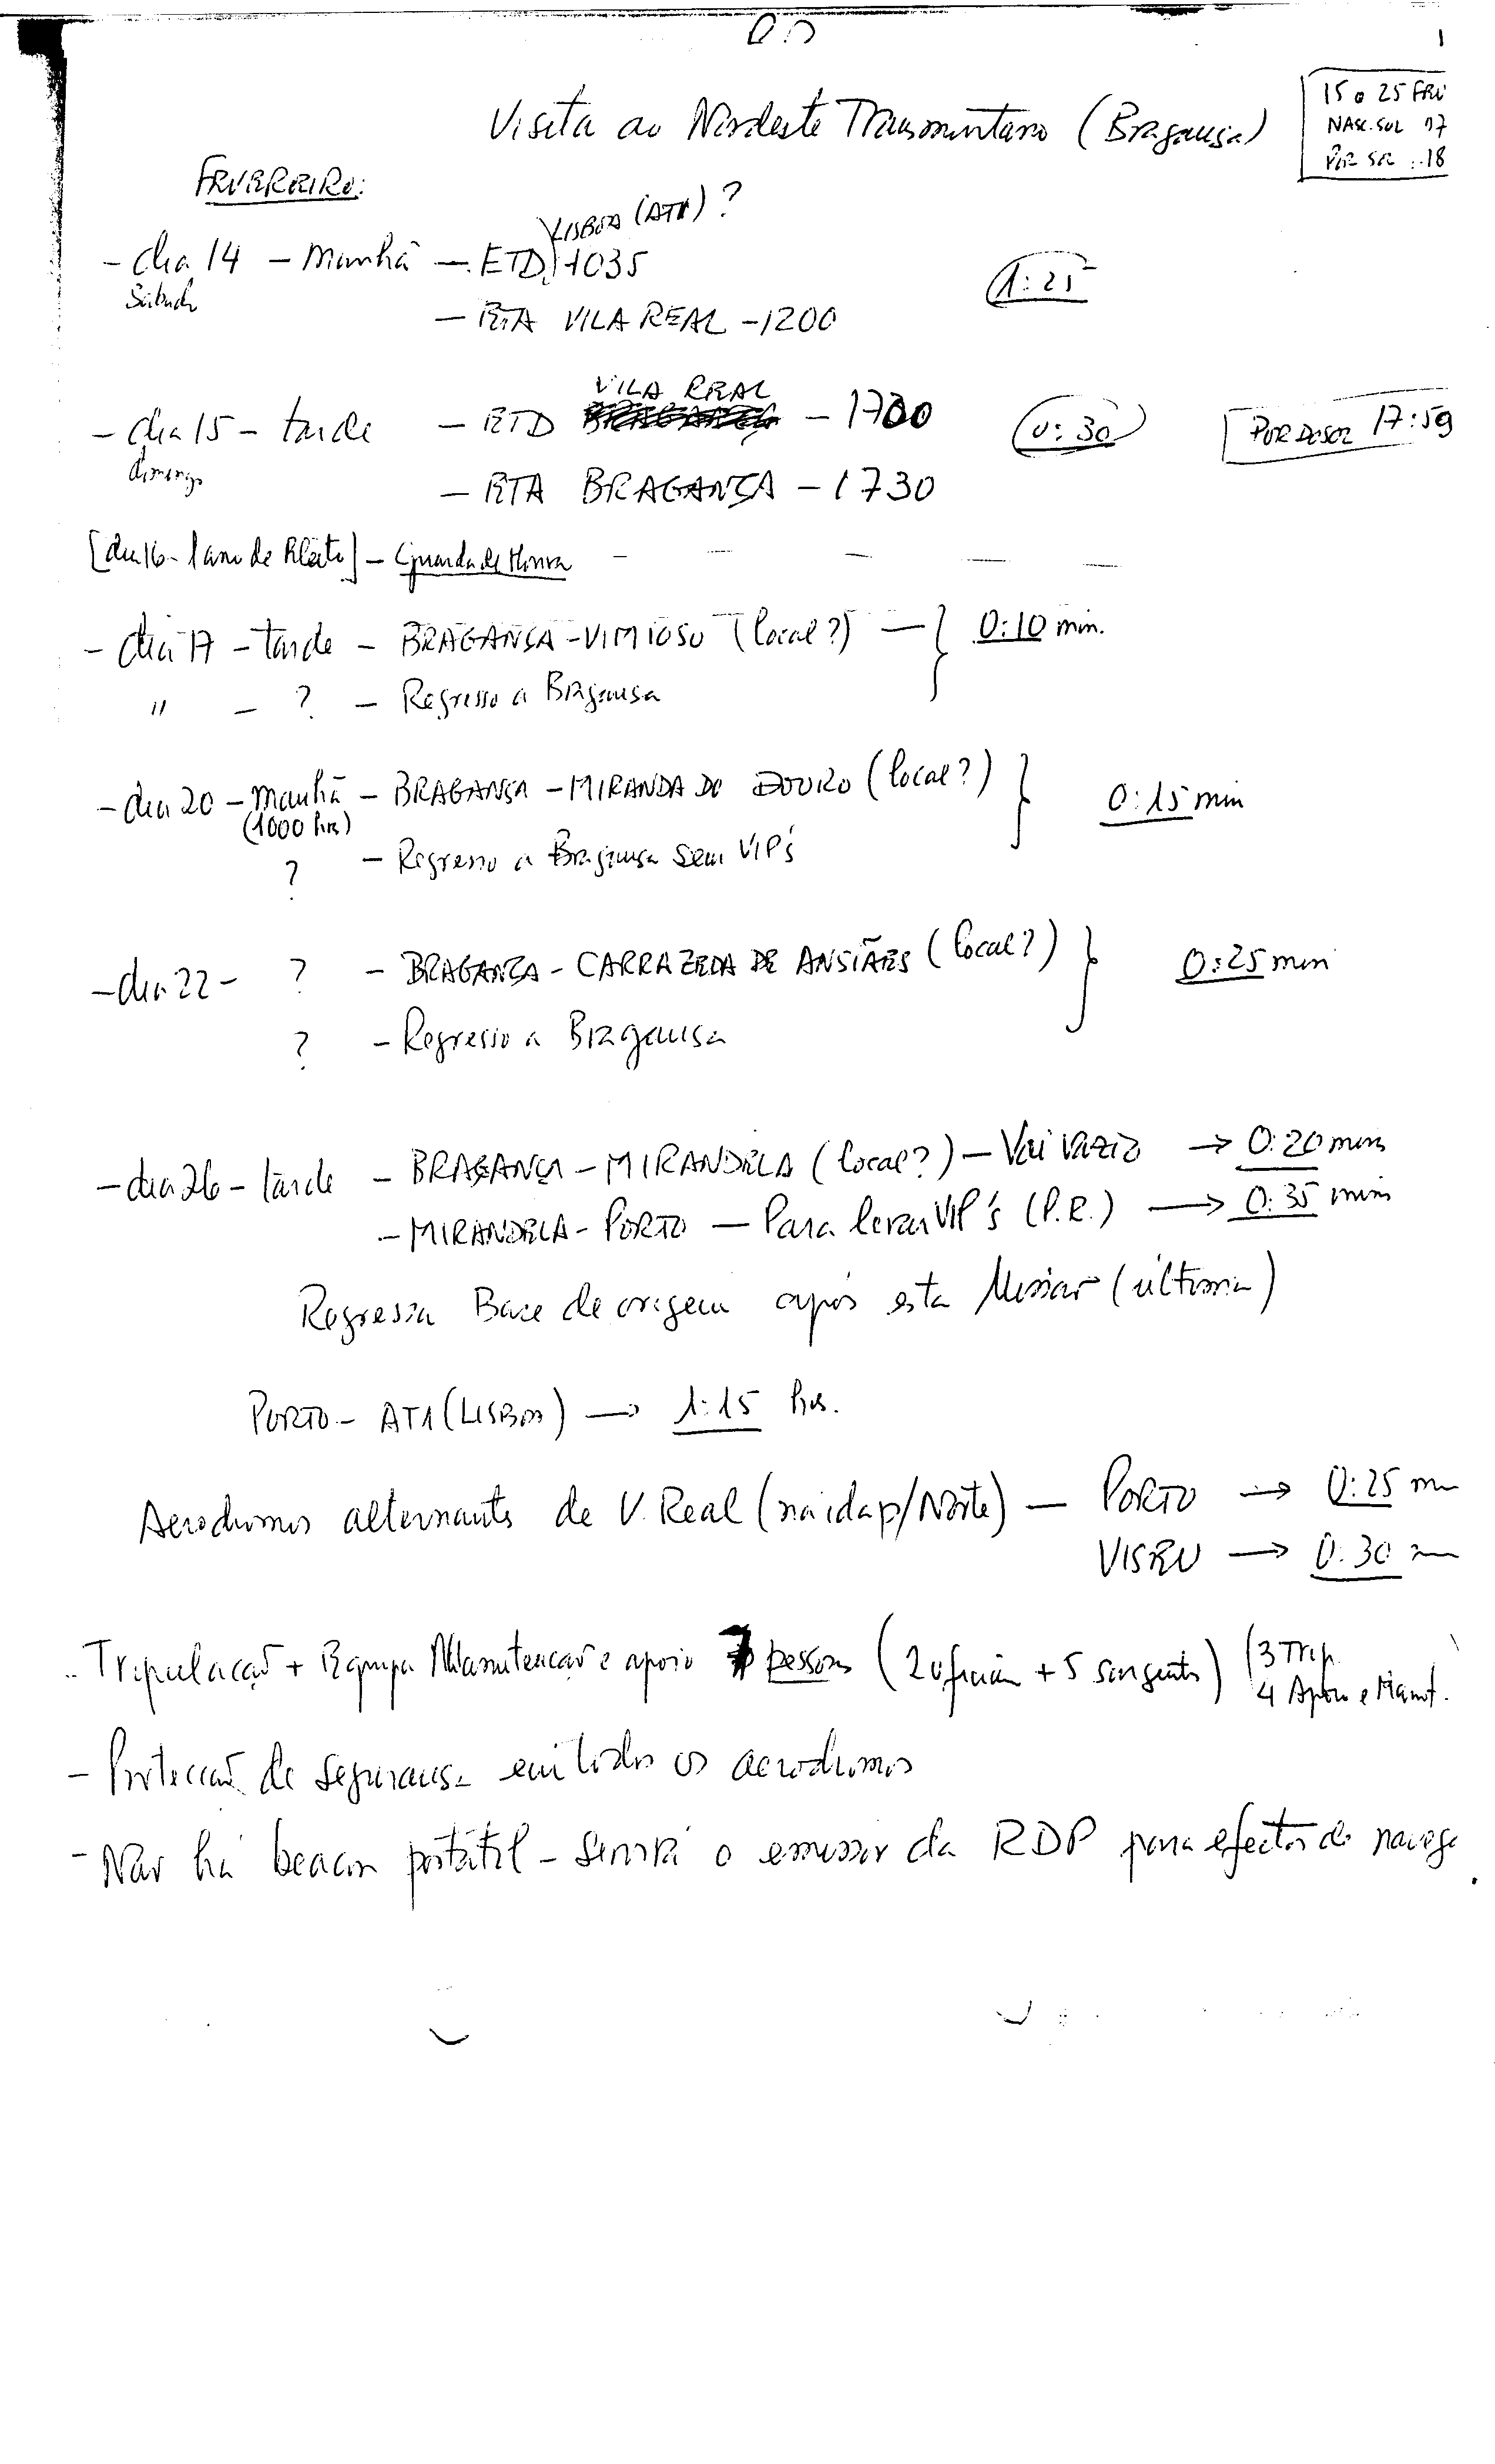 1
Visita ao Nordeste Transmontano (Bragança)
15 a 25 FEV
NASC. SOL 07
PÔR SOL :.18
FEVEREIRO:
LISBOA (AT1) ?
- dia 14 - manhã - ETD 1035
1:25
Sábado
- ETA VILA REAL - 1200
VILA REAL
- dia 15 - tarde - ETD BRAGANÇA - 1700
0:30
POR DO SOL 17:59
domingo
- ETA BRAGANÇA - 1730
[dia 16 - 1 ano de Eleito] - Guarda de Honra
- dia 17 - tarde - BRAGANÇA - VIMIOSO (local?) - } 0:10 min.
" - ? - Regresso a Bragança
- dia 20 - manhã - BRAGANÇA - MIRANDA DO DOURO (local?) } 0:15 min
(1000 hrs)
? - Regresso a Bragança sem VIP's
- dia 22 - ? - BRAGANÇA - CARRAZEDA DE ANSIÃES (local?) } 0:25 min
? - Regresso a Bragança
- dia 26 - tarde - BRAGANÇA - MIRANDELA (local?) - Vai VAZIO → 0:20 min
- MIRANDELA - PORTO - Para levar VIP's (P.R.) → 0:35 min
Regressa Base de origem após esta Missão (última)
PORTO - AT1 (LISBOA) → 1:15 hrs.
Aerodromos alternantes de V. Real (na ida p/ Norte) - PORTO → 0:25 m
VISEU → 0:30 m
- Tripulação + Equipa Manutenção e apoio 7 pessoas (2 oficiais + 5 sargentos) (3 Trip.
4 Apoio e Manut.
- Protecção de segurança em todos os aerodromos
- Não há beacon portátil - Servirá o emissor da RDP para efeitos de navega